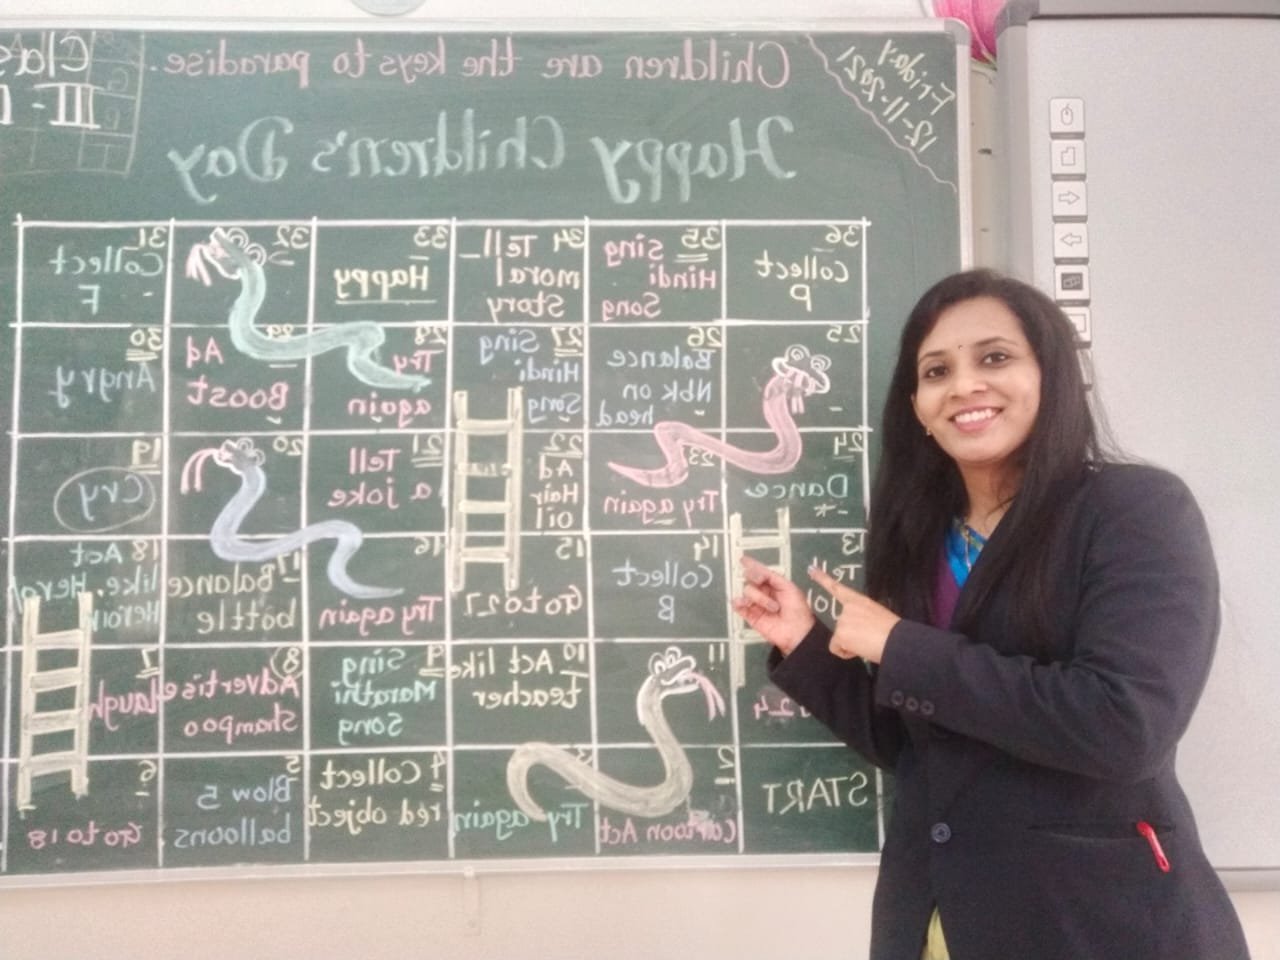 Friday
12-11-2021
Children are the keys to paradise.
Class
III - 
Happy Children's Day
36
Collect
P
35
Sing
Hindi
Song
34 Tell
moral
Story
33
Happy
32
31
Collect
F
25
26
Balance
Nbk on
head
27 Sing
Hindi
Song
28
Try
again
29
Ad
Boost
30
Angry
24
Dance
23
Try again
22
Ad
Hair
oil
21
Tell
a joke
20
19
Cry
13
Tell
14
Collect
B
15
Go to 27
16
Try again
17
Balance
bottle
18 Act
like, Hero/
Heroin
24
11
10 Act like
teacher
9 Sing
Marathi
Song
8)
Advertise
Shampoo
7
laugh
START
2
Cartoon Act
3
Try again
4 Collect
red object
5
Blow 5
balloons
6
Go to 18